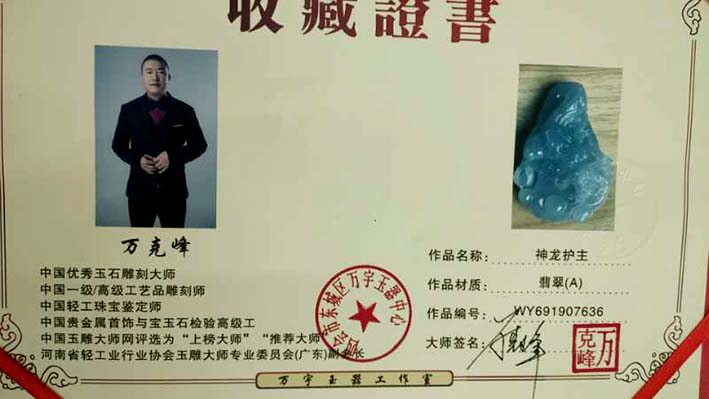 收藏證書
万克峰
中国优秀玉石雕刻大师
中国一级/高级工艺品雕刻师
中国轻工珠宝鉴定师
中国贵金属首饰与宝玉石检验高级工
中国玉雕大师网评选为“上榜大师”“推荐大师”
河南省轻工业行业协会玉雕大师专业委员会(广东)副会长
会市东城区万宇玉器中心
作品名称: 神龙护主
作品材质: 翡翠(A)
作品编号: WY691907636
大师签名:
万克峰
万宇玉器工作室